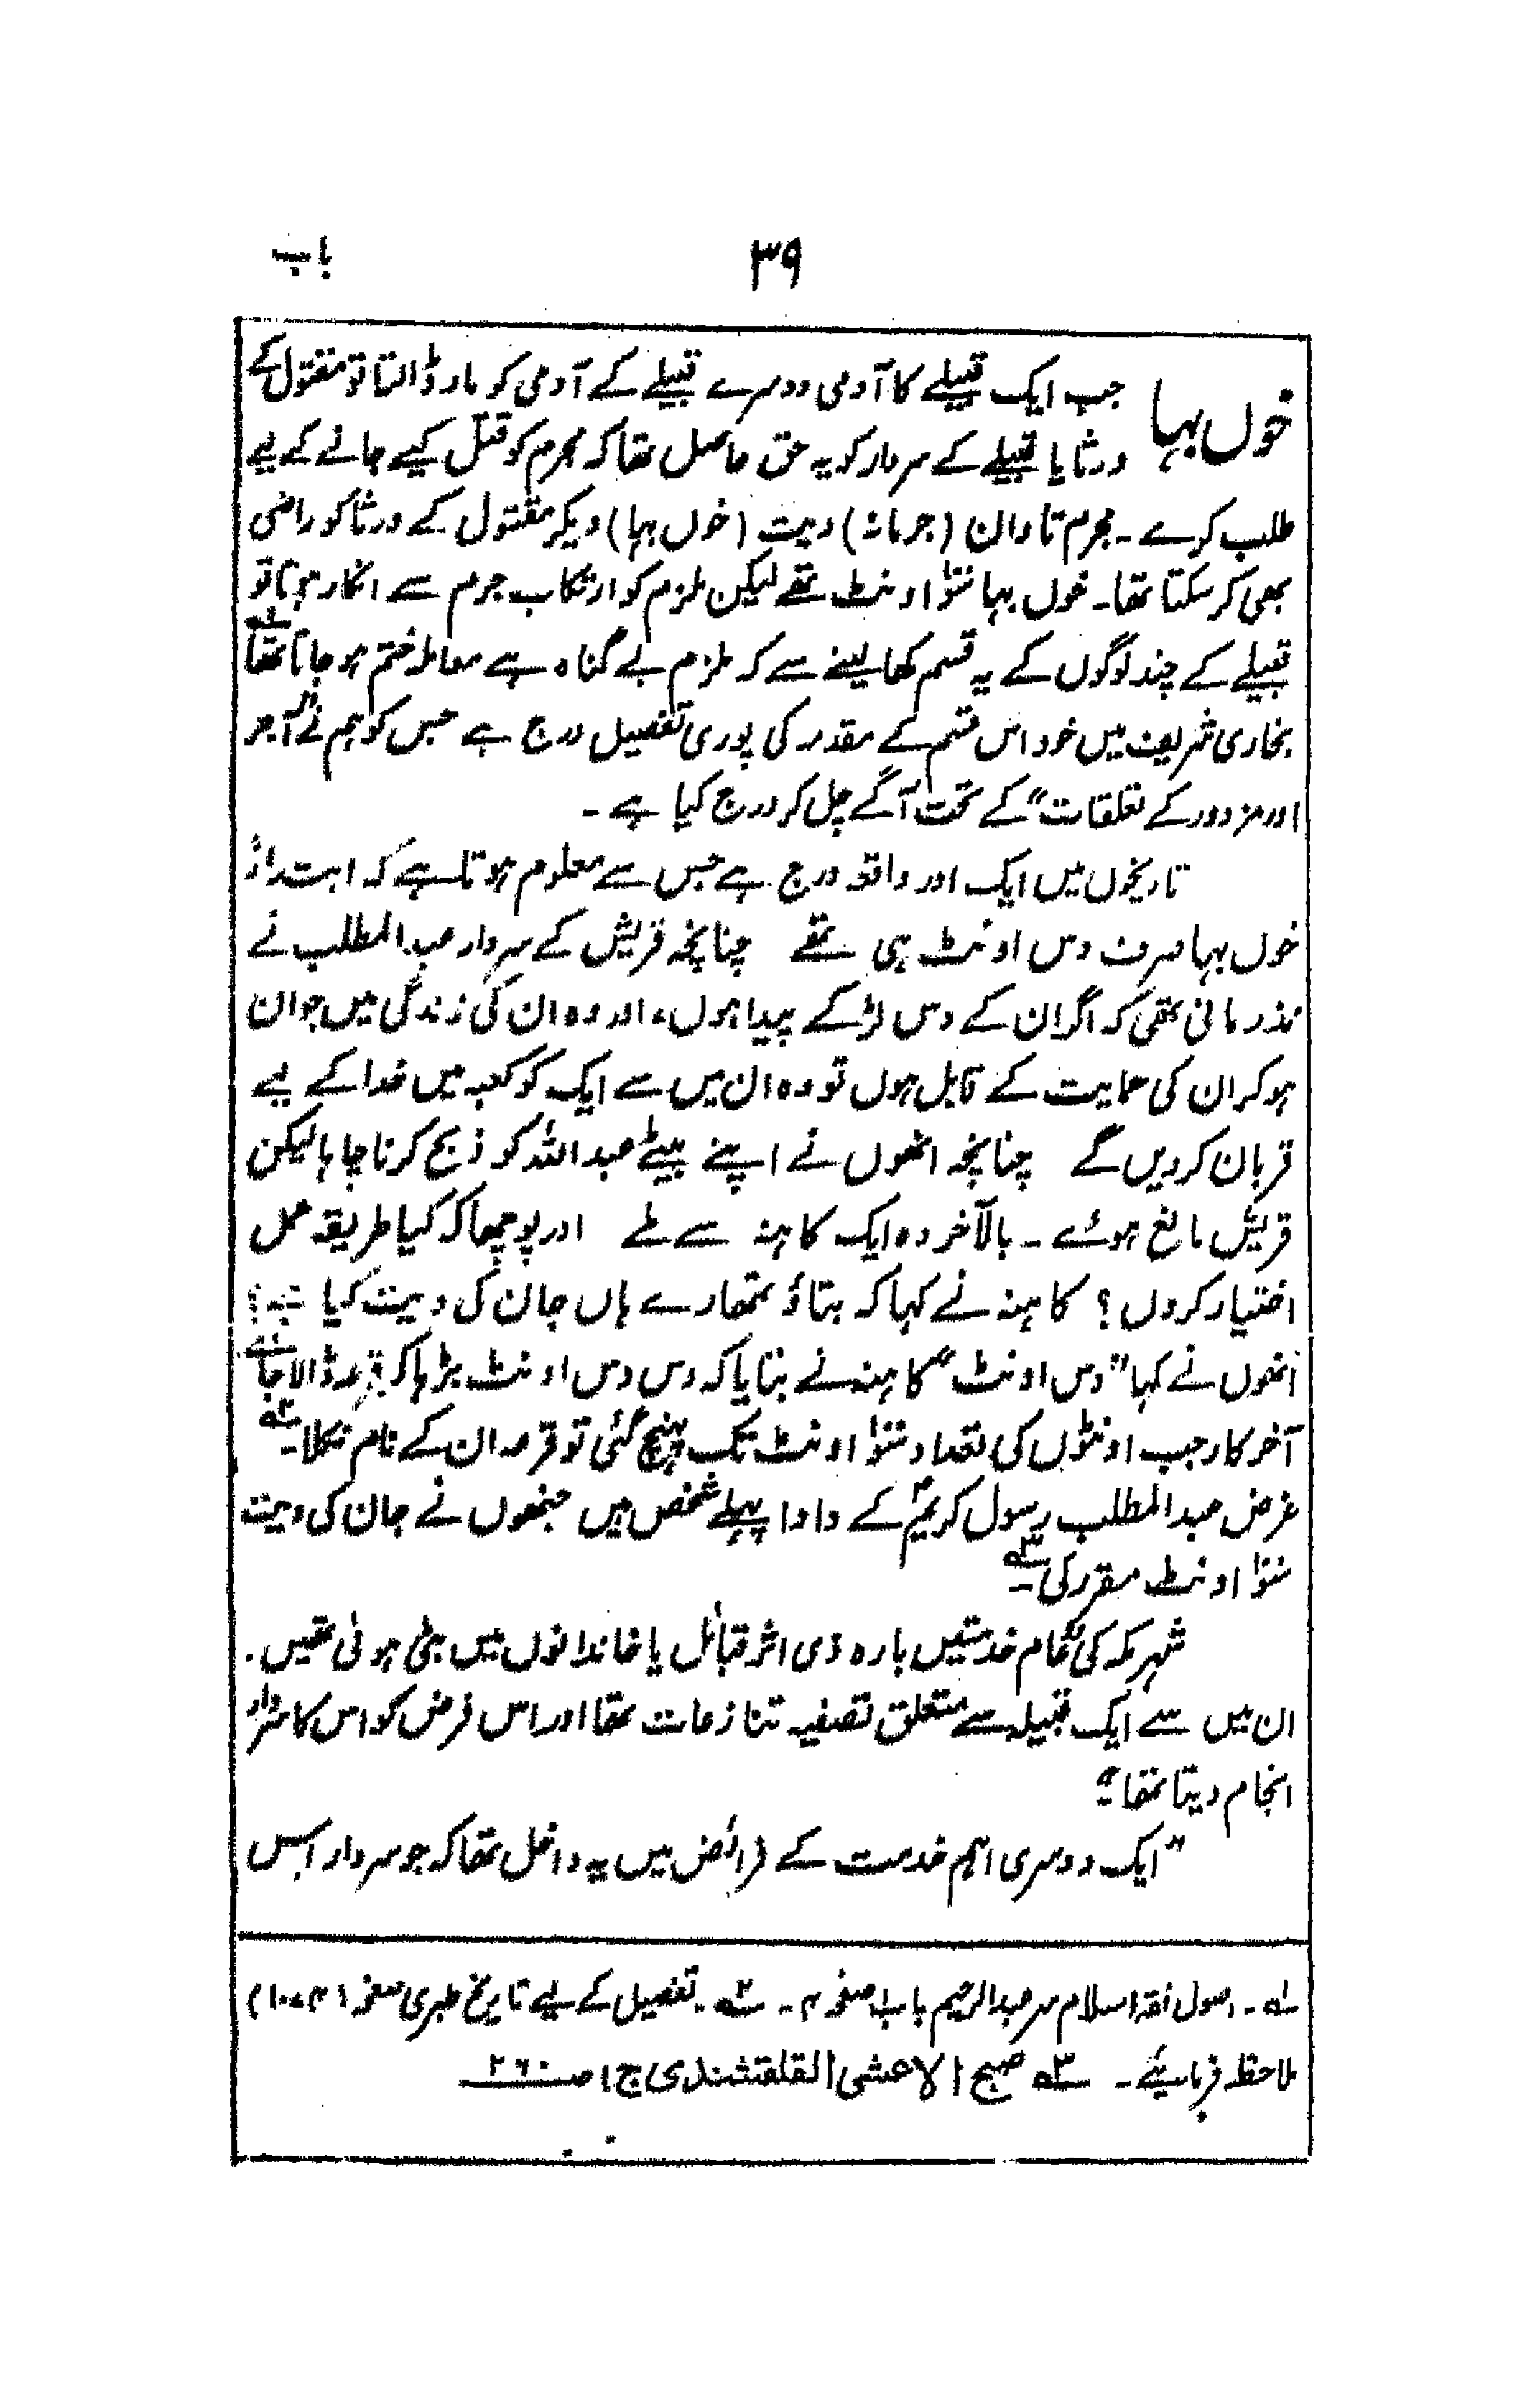 باب
۳۹
خوں بہا
جب ایک قبیلے کا آدمی دوسرے قبیلے کے آدمی کو مار ڈالتا تو مقتول کے
ورثا یا قبیلے کے سردار کو یہ حق حاصل تھا کہ مجرم کو قتل کیے جانے کے لیے
طلب کرے ۔ مجرم تاوان (جرمانہ) دیت (خوں بہا) دیکر مقتول کے ورثا کو راضی
بھی کر سکتا تھا ۔ خوں بہا سَو اونٹ تھے لیکن ملزم کو ارتکاب جرم سے انکار ہوتا تو
قبیلے کے چند لوگوں کے یہ قسم کھا لینے سے کہ ملزم بے گناہ ہے معاملہ ختم ہو جاتا تھا ؂۱
بخاری شریف میں خود اس قسم کے مقدمہ کی پوری تفصیل درج ہے جس کو ہم نے "آجر
اور مزدور کے تعلقات" کے تحت آگے چل کر درج کیا ہے ۔
تاریخوں میں ایک اور واقعہ درج ہے جس سے معلوم ہوتا ہے کہ ابتداءً
خوں بہا صرف دس اونٹ ہی تھے چنانچہ قریش کے سردار عبدالمطلب نے
نذر مانی تھی کہ اگر ان کے دس لڑکے پیدا ہوں، اور وہ ان کی زندگی میں جوان
ہو کر ان کی حمایت کے قابل ہوں تو وہ ان میں سے ایک کو کعبہ میں خدا کے لیے
قربان کر دیں گے چنانچہ انھوں نے اپنے بیٹے عبداللہ کو ذبح کرنا چاہا لیکن
قریش مانع ہوئے ۔ بالآخر وہ ایک کاہنہ سے ملے اور پوچھا کہ کیا طریقہ عمل
اختیار کروں ؟ کاہنہ نے کہا کہ بتاؤ تمھارے ہاں جان کی دیت کیا ہے ؟
انھوں نے کہا "دس اونٹ" کاہنہ نے بتایا کہ دس دس اونٹ بڑھا کر قرعہ ڈالا جائے
آخر کار جب اونٹوں کی تعداد سَو اونٹ تک پہنچ گئی تو قرعہ ان کے نام نکلا ۔ ؂۲
غرض عبدالمطلب رسول کریمؐ کے دادا پہلے شخص ہیں جنھوں نے جان کی دیت
سَو اونٹ مقرر کی ۔ ؂۳
شہر مکہ کی تمام خدمتیں بارہ ذی اثر قبائل یا خاندانوں میں بٹی ہوئی تھیں ۔
ان میں سے ایک قبیلہ سے متعلق تصفیہ تنازعات تھا اور اس فرض کو اس کا سردار
انجام دیتا تھا ۔
"ایک دوسری اہم خدمت کے فرائض میں یہ داخل تھا کہ جو سردار اس
؂۱ ۔ اصول فقہ اسلام سر عبدالرحیم باب صفحہ ۴ ۔ ؂۲ ۔ تفصیل کے لیے تاریخ طبری صفحہ (۱۰۷۴)
ملاحظہ فرمایئے ۔ ؂۳ صبح الاعشی القلقشندی ج ۱ ص ۲۶۰